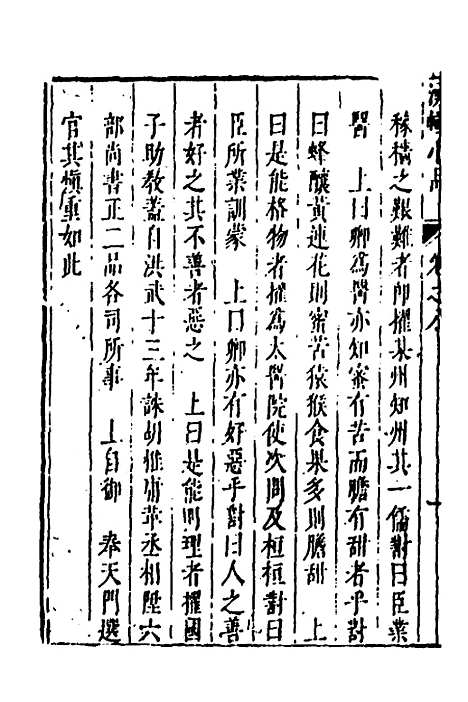 湧幢小品 卷之八
稼穡之艱難者卽擢某州知州其一儒對曰臣業
醫　上曰卿爲醫亦知蜜有苦而膽有甜者乎對
曰蜂釀黃連花則蜜苦猿猴食果多則膽甜　上
曰是能格物者擢爲太醫院使次問及桓桓對曰
臣所業訓蒙　上曰卿亦有好惡乎對曰人之善
者好之其不善者惡之　上曰是能明理者擢國
子助教蓋自洪武十三年誅胡惟庸革丞相陞六
部尚書正二品各司所事　上自御　奉天門選
官其慎重如此